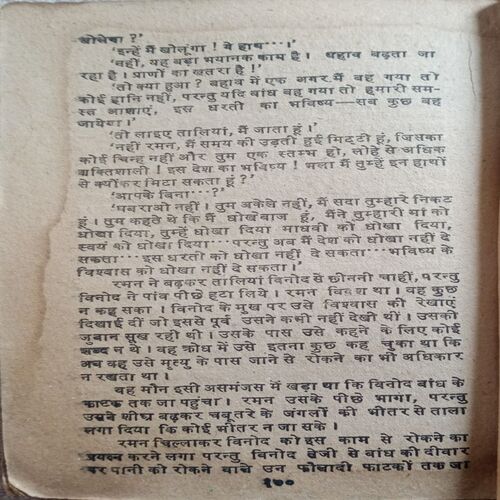 खोलेगा ?'
'इन्हें मैं खोलूंगा ! ये हाथ···।'
'नहीं, यह बड़ा भयानक काम है। बहाव बढ़ता जा
रहा है। प्राणों का खतरा है !'
'तो क्या हुआ ? बहाव में एक अगर मैं बह गया तो
कोई हानि नहीं, परन्तु यदि बांध बह गया तो हमारी सम-
स्त आशाएं, इस धरती का भविष्य—सब कुछ बह
जायेगा।'
'तो लाइए तालियां, मैं जाता हूं।'
'नहीं रमन, मैं समय की उड़ती हुई मिट्टी हूं, जिसका
कोई चिन्ह नहीं और तुम एक स्तम्भ हो, लोहे से अधिक
शक्तिशाली ! इस देश का भविष्य ! भला मैं तुम्हें इन हाथों
से क्योंकर मिटा सकता हूं ?'
'आपके बिना···?'
'घबराओ नहीं। तुम अकेले नहीं, मैं सदा तुम्हारे निकट
हूं। तुम कहते थे कि मैं धोखेबाज हूं, मैंने तुम्हारी मां को
धोखा दिया, तुम्हें धोखा दिया माधवी को धोखा दिया,
स्वयं को धोखा दिया···परन्तु अब मैं देश को धोखा नहीं दे
सकता···इस धरती को धोखा नहीं दे सकता···भविष्य के
विश्वास को धोखा नहीं दे सकता।'
रमन ने बढ़कर तालियां विनोद से छीननी चाहीं, परन्तु
विनोद ने पांव पीछे हटा लिये। रमन विवश था। वह कुछ
न कह सका। विनोद के मुख पर उसे विश्वास की रेखाएं
दिखाई दीं जो इससे पूर्व उसने कभी नहीं देखी थीं। उसकी
जुबान सूख रही थी। उसके पास उसे कहने के लिए कोई
शब्द न थे। वह क्रोध में उसे इतना कुछ कह चुका था कि
अब वह उसे मृत्यु के पास जाने से रोकने का भी अधिकार
न रखता था।
वह मौन इसी असमंजस में खड़ा था कि विनोद बांध के
फाटक तक जा पहुंचा। रमन उसके पीछे भागा, परन्तु
उसने शीघ्र बढ़कर चबूतरे के जंगलों की भीतर से ताला
लगा दिया कि कोई भीतर न जा सके।
रमन चिल्लाकर विनोद को इस काम से रोकने का
प्रयत्न करने लगा परन्तु विनोद तेजी से बांध की दीवार
पर पानी को रोकने वाले उन फौलादी फाटकों तक जा
१७०